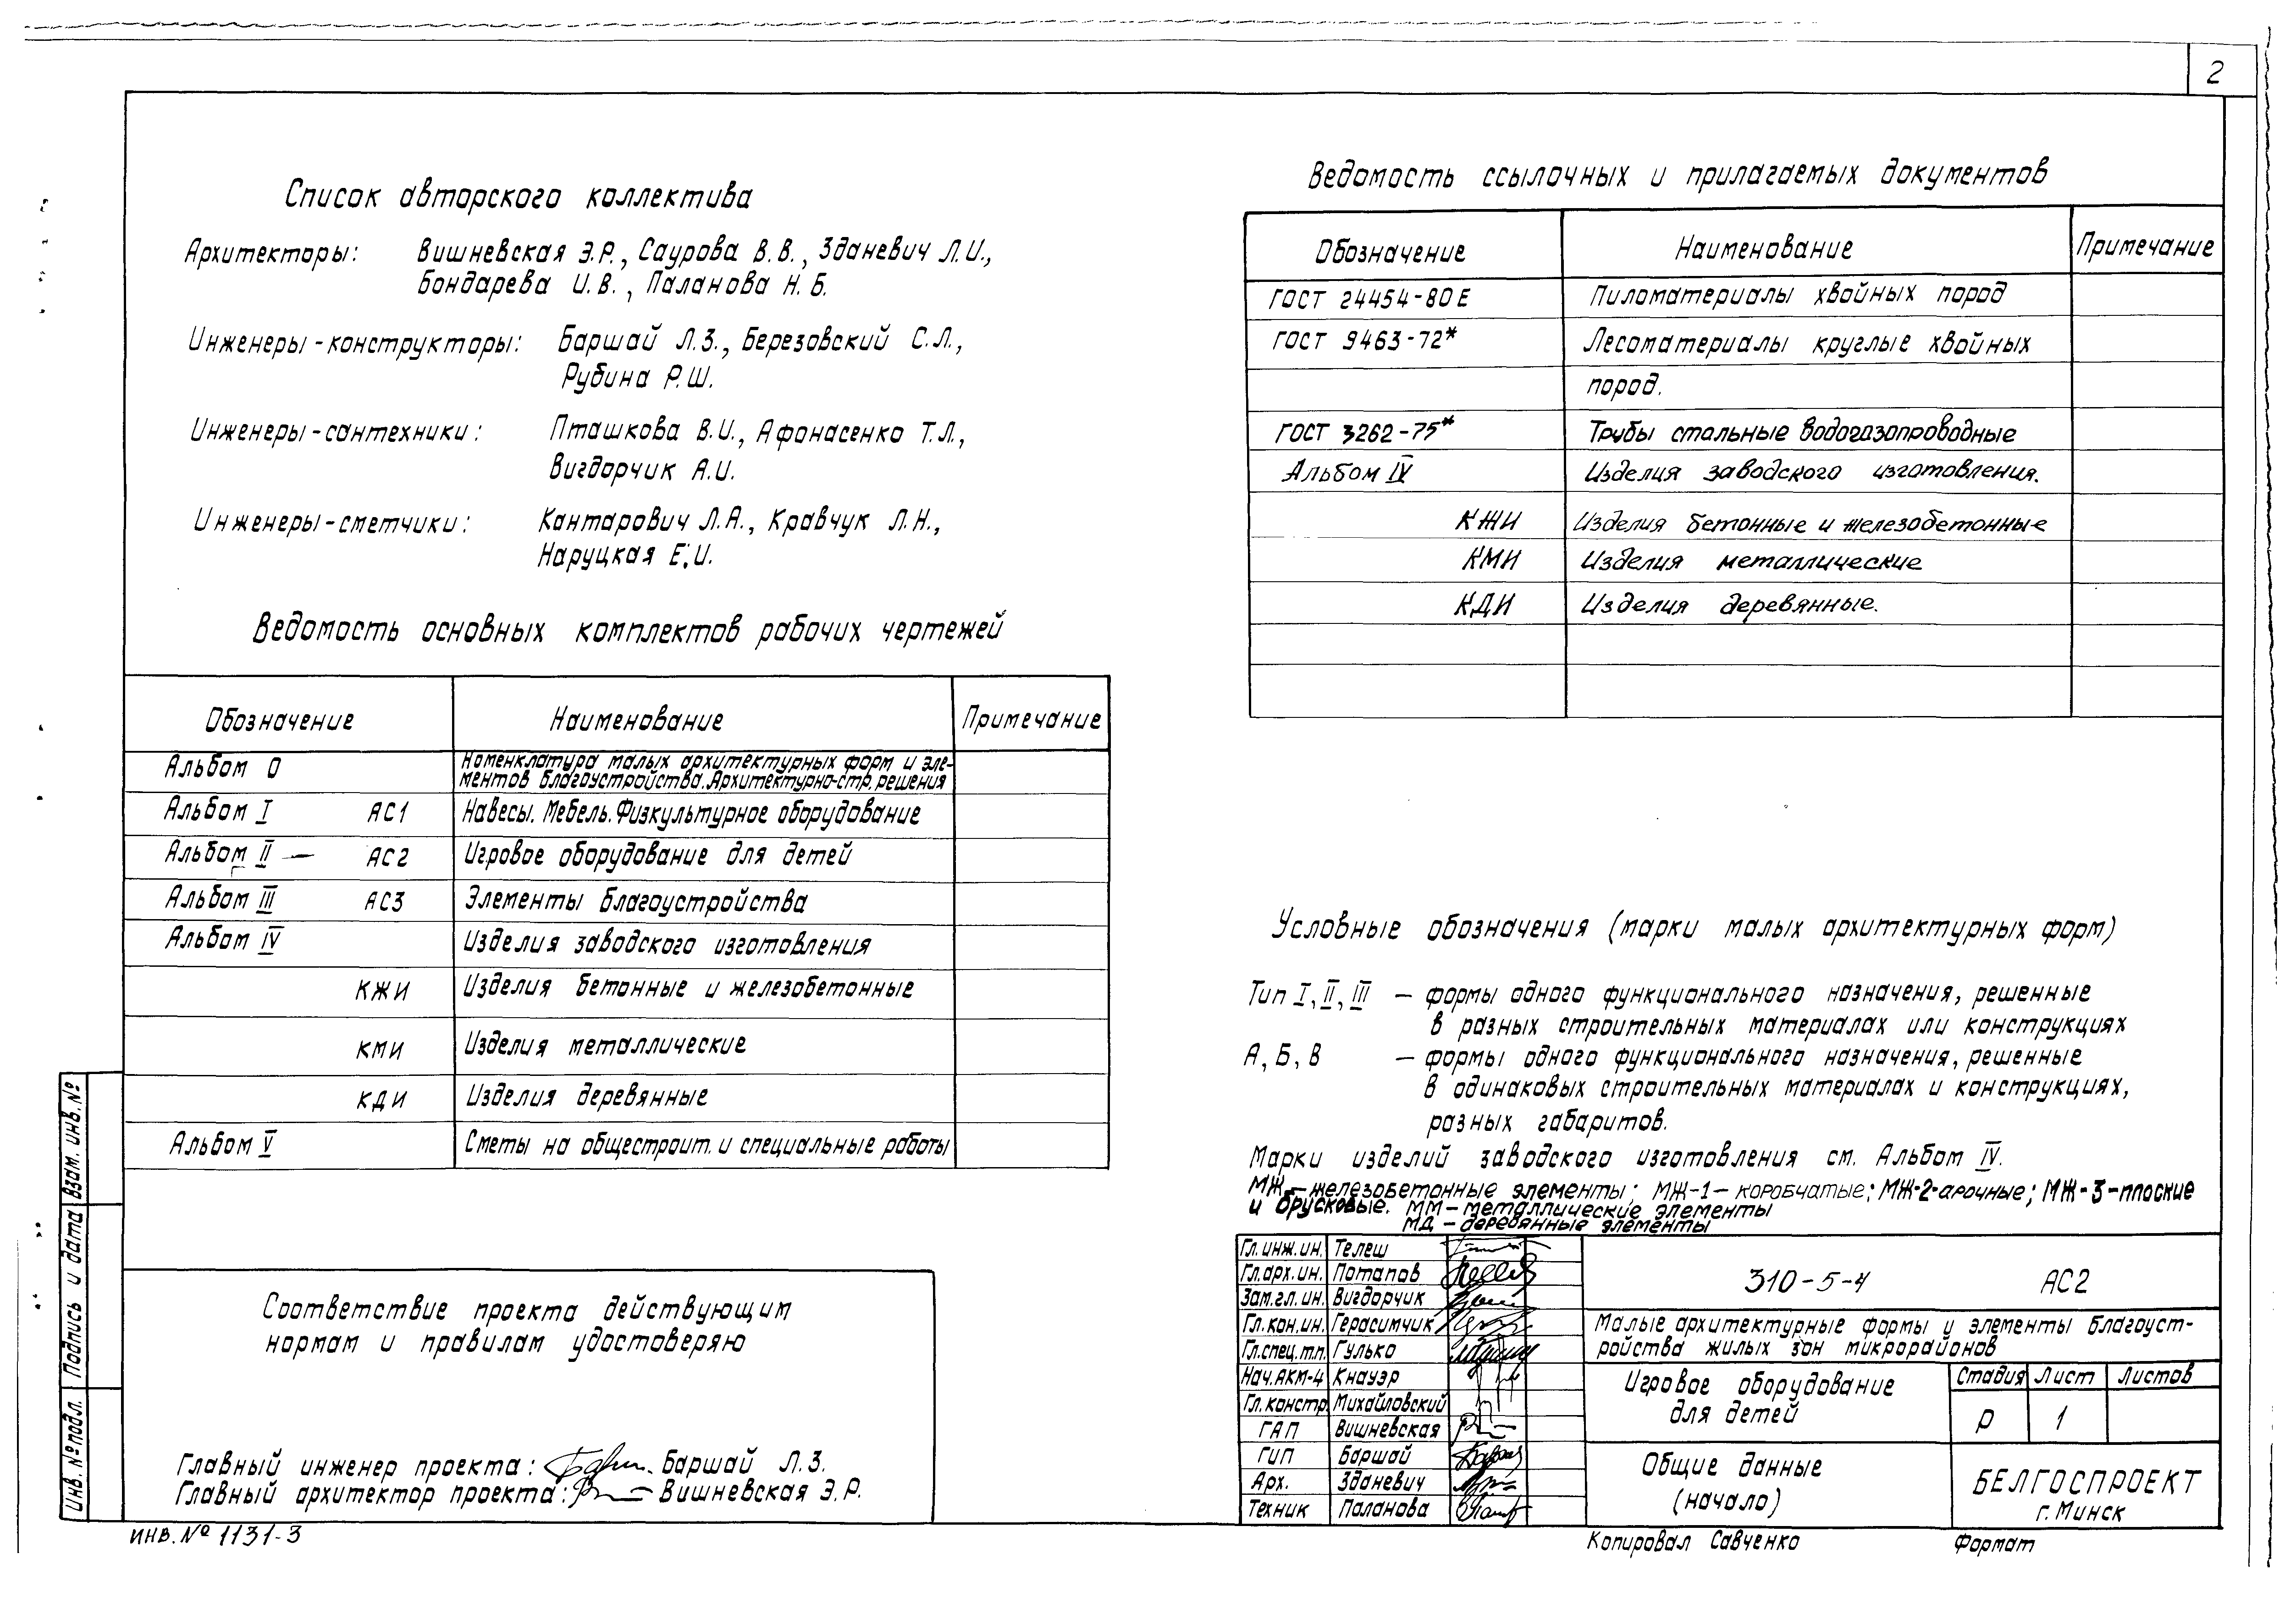 2
Список авторского коллектива
Архитекторы: Вишневская Э.Р., Саурова В.В., Зданевич Л.И.,
Бондарева И.В., Паланова Н.Б.
Инженеры-конструкторы: Баршай Л.З., Березовский С.Л.,
Рубина Р.Ш.
Инженеры-сантехники: Пташкова В.И., Афонасенко Т.Л.,
Вигдорчик А.И.
Инженеры-сметчики: Кантарович Л.А., Кравчук Л.Н.,
Наруцкая Е.И.
Ведомость основных комплектов рабочих чертежей
Обозначение Наименование Примечание
Альбом 0 Номенклатура малых архитектурных форм и эле-
ментов благоустройства. Архитектурно-стр. решения
Альбом I АС1 Навесы. Мебель. Физкультурное оборудование
Альбом II — АС2 Игровое оборудование для детей
Альбом III АС3 Элементы благоустройства
Альбом IV Изделия заводского изготовления
КЖИ Изделия бетонные и железобетонные
КМИ Изделия металлические
КДИ Изделия деревянные
Альбом V Сметы на общестроит. и специальные работы
Соответствие проекта действующим
нормам и правилам удостоверяю
Главный инженер проекта: Баршай Л.З.
Главный архитектор проекта: Вишневская Э.Р.
Взам. инв. №
Подпись и дата
Инв. № подл.
ИНВ. № 1131-3
Ведомость ссылочных и прилагаемых документов
Обозначение Наименование Примечание
ГОСТ 24454-80Е Пиломатериалы хвойных пород
ГОСТ 9463-72* Лесоматериалы круглые хвойных
пород.
ГОСТ 3262-75* Трубы стальные водогазопроводные
Альбом IV Изделия заводского изготовления.
КЖИ Изделия бетонные и железобетонные
КМИ Изделия металлические
КДИ Изделия деревянные.
Условные обозначения (марки малых архитектурных форм)
Тип I, II, III — формы одного функционального назначения, решенные
в разных строительных материалах или конструкциях
А, Б, В — формы одного функционального назначения, решенные
в одинаковых строительных материалах и конструкциях,
разных габаритов.
Марки изделий заводского изготовления см. Альбом IV.
МЖ — железобетонные элементы; МЖ-1 — коробчатые; МЖ-2-арочные; МЖ-3-плоские
и брусковые. ММ — металлические элементы
МД — деревянные элементы
Гл. инж. ин. Телеш
Гл. арх. ин. Потапов
Зам. гл. ин. Вигдорчик
Гл. кон. ин. Герасимчик
Гл. спец. т.п. Гулько
Нач. АКМ-4 Кнауэр
Гл. констр. Михайловский
ГАП Вишневская
ГИП Баршай
Арх. Зданевич
Техник Паланова
310-5-4 АС2
Малые архитектурные формы и элементы благоуст-
ройства жилых зон микрорайонов
Игровое оборудование
для детей
Стадия Лист Листов
Р 1
Общие данные
(начало)
БЕЛГОСПРОЕКТ
г. Минск
Копировал Савченко Формат